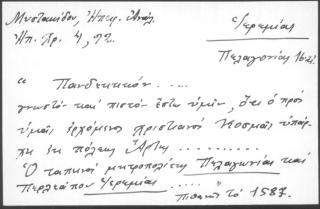 Μυστακίδου, Ἠπειρ. Ἀνάλ.
Ἠπ. Χρ. 4, 92
Ἱερεμίας
Πελαγονίας
" Πανδεκτικόν . . . .
γνωστόν καί πιστόν ἔστω ὑμῖν, ὅτι ὁ πρός
ὑμᾶς ἐρχόμενος χριστιανός Κοσμᾶς ὑπάρ-
χει ἐκ πόλεως Ἄρτης . . . . . . . . . .
Ὁ ταπεινός μητροπολίτης Πελαγονίας καί
Περλεάπου Ἱερεμίας . . . . .
τό 1587.